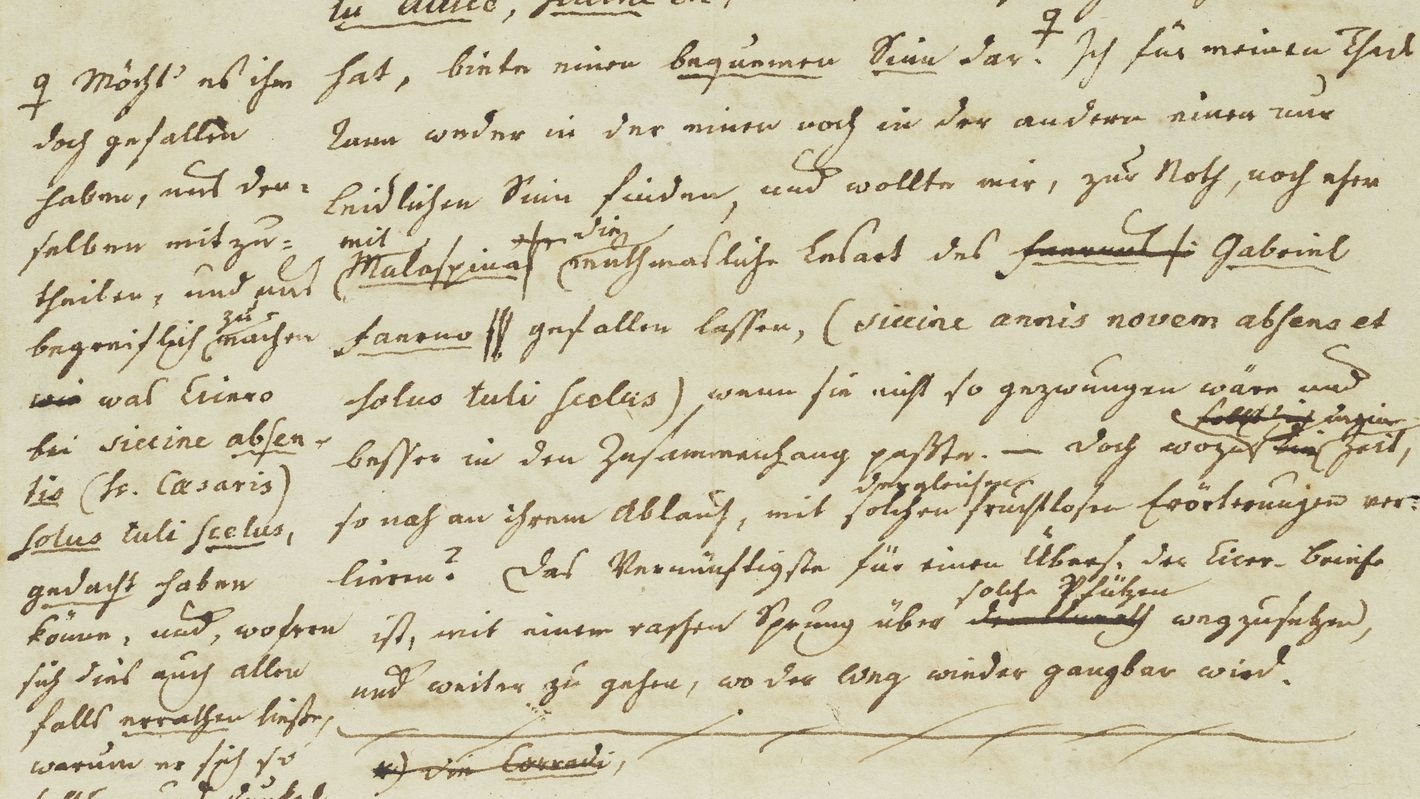 hat, biete einen bequemen Sinn dar. ♀ Ich für meinen Theil
kann weder in der einen noch in der andern einen nur
leidlichen Sinn finden, und wollte mir, zur Noth, noch eher
mit die
(Malaspina muthmasliche Lesart des Faernus Gabriel
Faerno gefallen lassen, (siccine annis novem absens et
solus tuli scelus) wenn sie nicht so gezwungen wäre und
besser in den Zusammenhang paßte. — Doch wozu Zeit,
dergleichen
so nah an ihrem Ablauf, mit solchen fruchtlosen Erörterungen ver-
lieren? Das Vernünftigste für einen Übers. der Cicer. Briefe
solche Pfützen
ist, mit einem raschen Sprung über wegzusetzen,
und weiter zu gehen, wo der Weg wieder gangbar wird.
*) die Corradi,
♀ Möcht' es ihm
doch gefallen
haben, uns den-
selben mitzu-
theilen, und uns
zu
begreiflich machen
wie was Cicero
bei siccine absen-
tis (sc. Cæsaris)
solus tuli scelus,
gedacht haben
könne, und, wofern
sich dies auch allen
falls errathen ließe,
warum er sich so